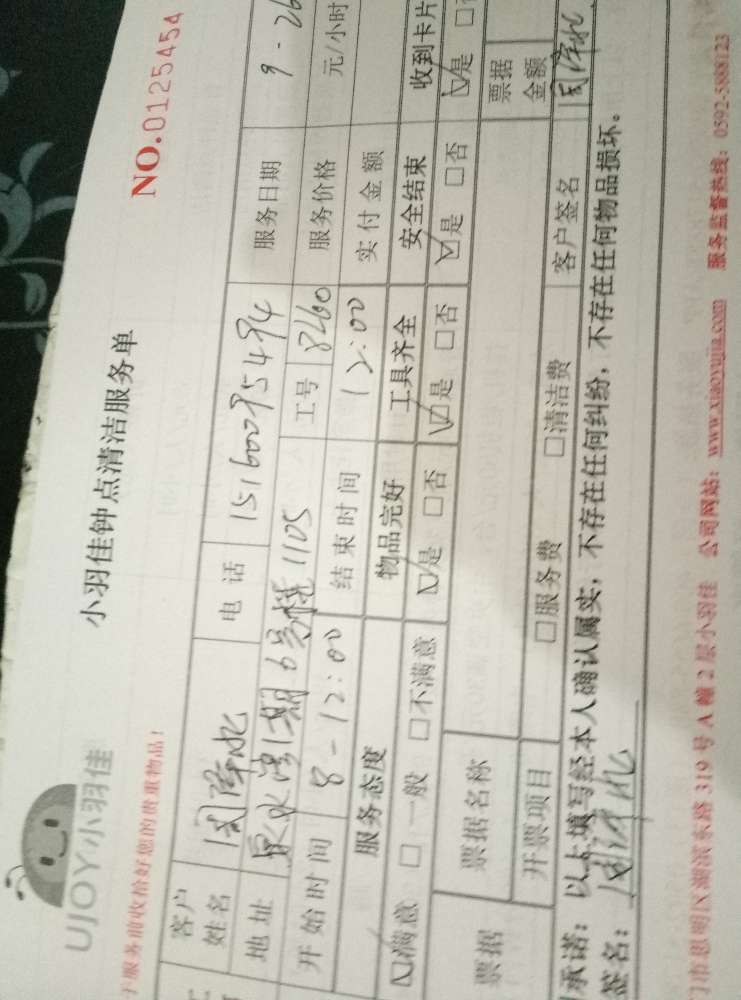 UJOY小羽佳
小羽佳钟点清洁服务单
NO.0125454
于服务前收拾好您的贵重物品！
客户姓名 电话 服务日期 9-26
地址 泉水湾1期6号楼1105 工号 8460 服务价格 元/小时
开始时间 8-12:00 结束时间 12:00 实付金额
服务态度 物品完好 工具齐全 安全结束 收到卡片
☑满意 □一般 □不满意 ☑是 □否 ☑是 □否 ☑是 □否 ☑是
票据 票据名称 票据金额
开票项目 □服务费 □清洁费 客户签名
承诺：以上填写经本人确认属实，不存在任何纠纷，不存在任何物品损坏。
签名：
门市思明区湖滨东路319号A幢2层小羽佳 公司网站：www.xiaoyujia.com 服务监督热线：0592-5888123